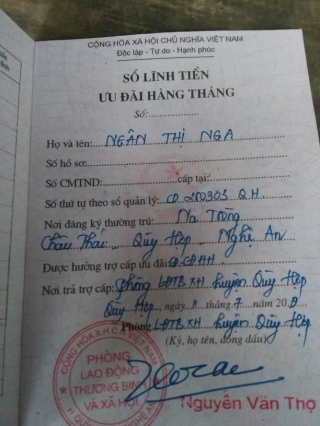 CỘNG HÒA XÃ HỘI CHỦ NGHĨA VIỆT NAM
Độc lập - Tự do - Hạnh phúc
SỔ LĨNH TIỀN
ƯU ĐÃI HÀNG THÁNG
Số:
Họ và tên: NGÂN THỊ NGA
Số hồ sơ:
Số CMTND: cấp tại:
Số thứ tự theo sổ quản lý: CĐ 200303 Q.H.
Nơi đăng ký thường trú: Na Trồng
Châu Thái Quỳ Hợp Nghệ An
Được hưởng trợ cấp ưu đãi:
Nơi trả trợ cấp: phòng LĐTBXH huyện Quỳ Hợp
Quỳ Hợp, ngày 11 tháng 7 năm 20
Phòng LĐTBXH huyện Quỳ Hợp
(Ký, họ tên, đóng dấu)
CỘNG HÒA X.H.C.N VIỆT NAM
PHÒNG
LAO ĐỘNG
THƯƠNG BINH
VÀ XÃ HỘI
Nguyễn Văn Thọ